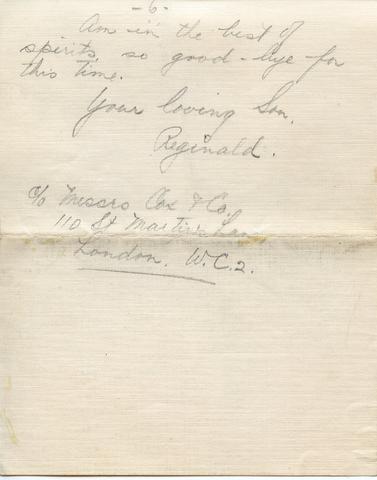 -6-
Am in the best of
spirits, so good-bye for
this time.
Your loving Son,
Reginald.
c/o Messrs Cox & Co,
110 St Martin's Lane
London. W.C.2.